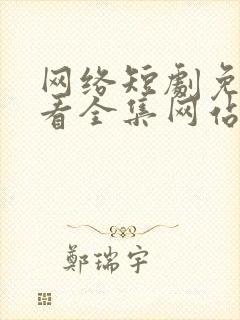 网络短剧免
看全集网站
鄭瑞宇